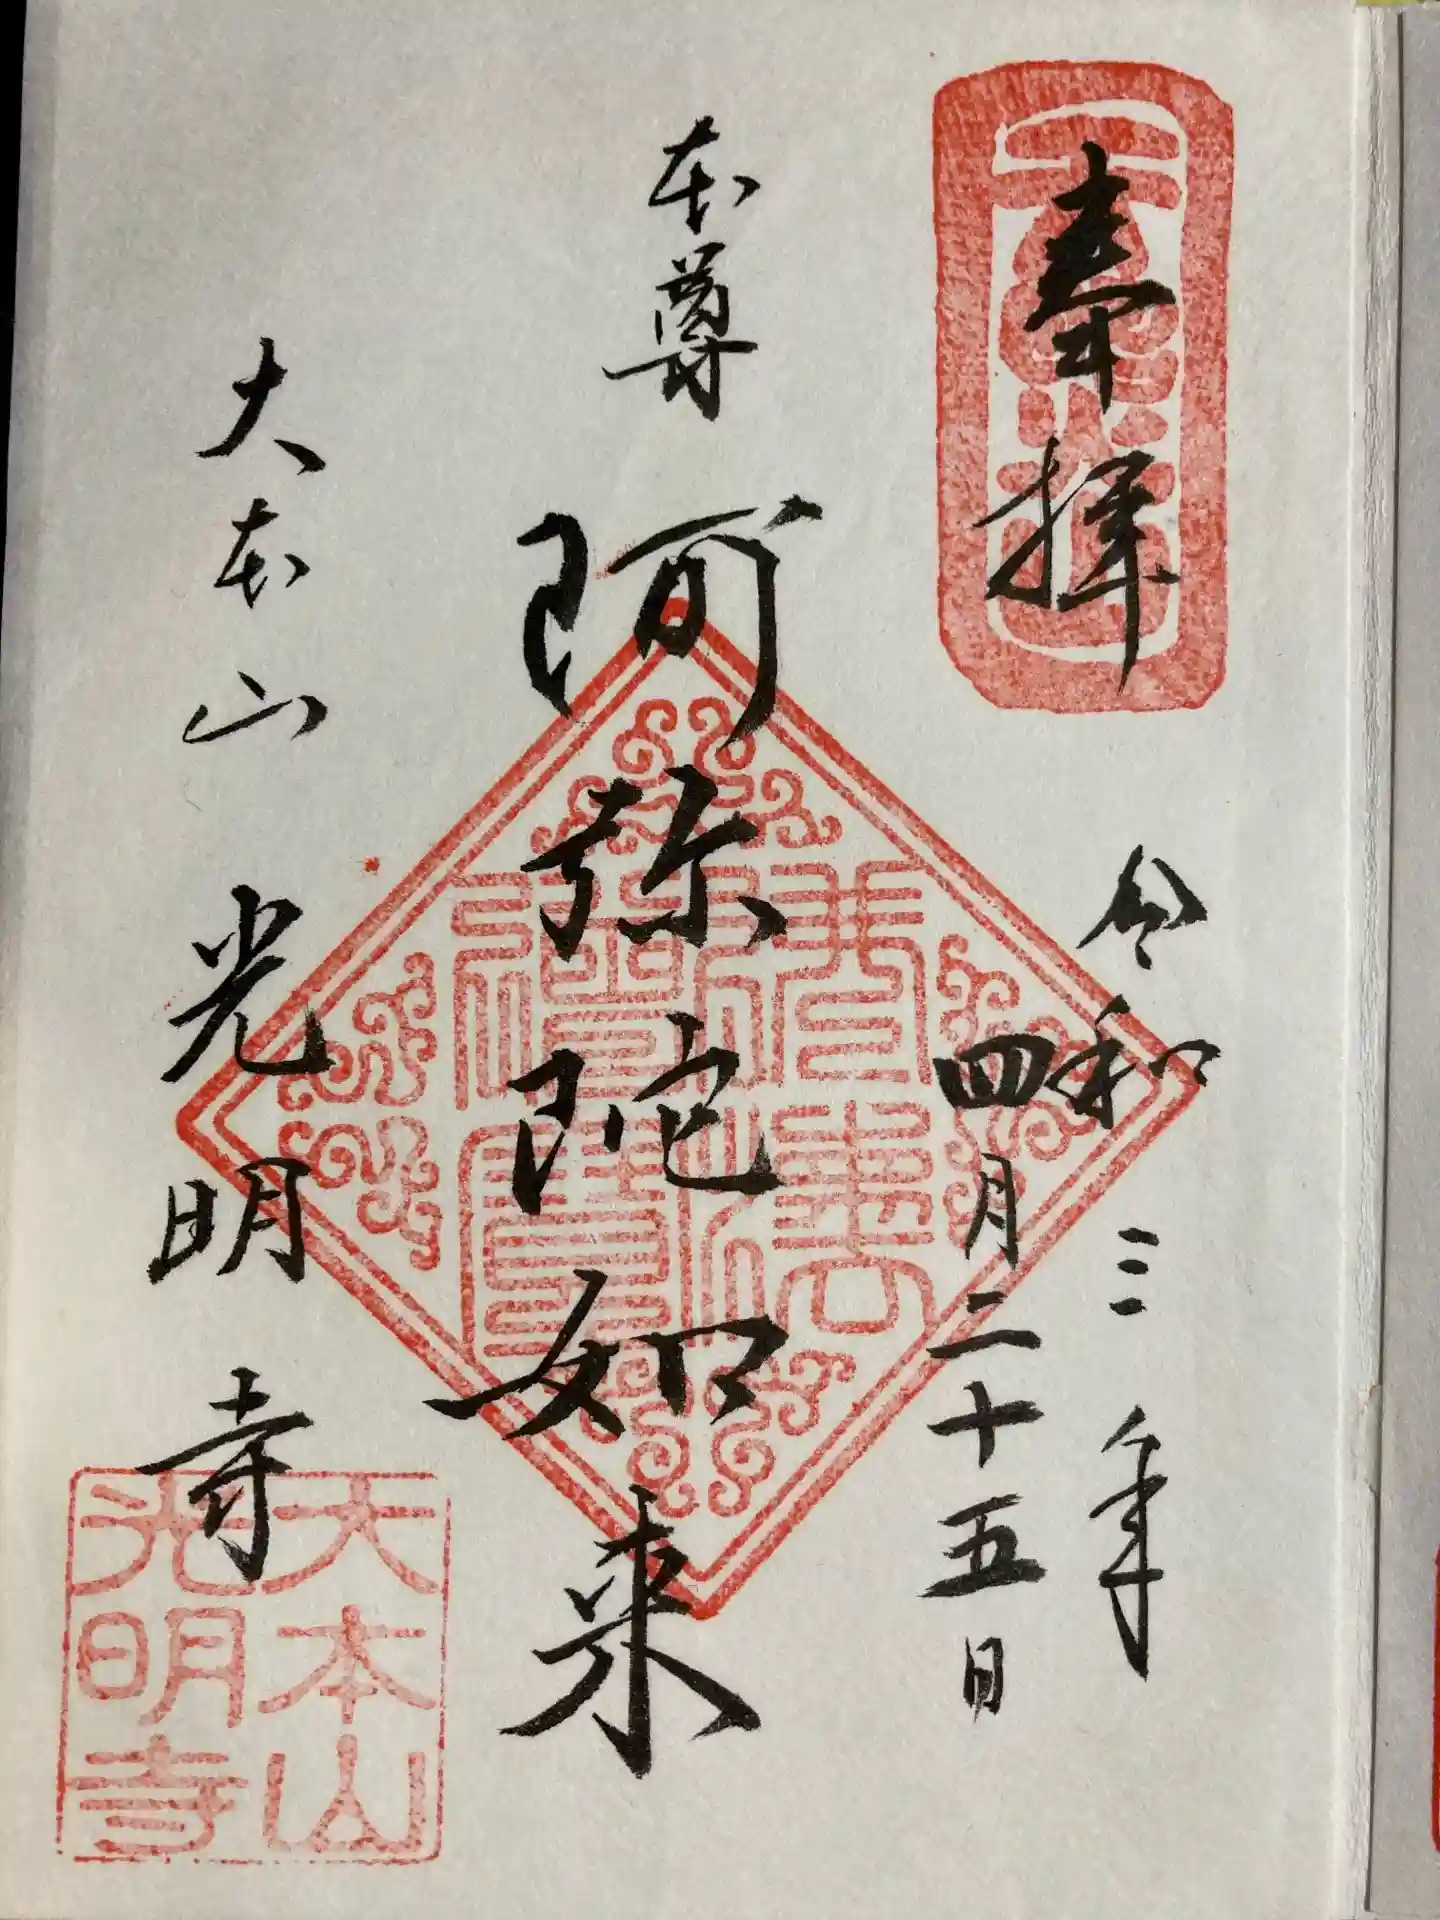 奉拝
令和三年
四月二十五日
本尊
阿弥陀如来
佛法僧寶
大本山
光明寺
大本山
光明寺